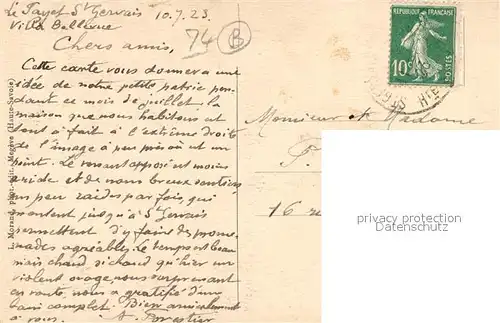 Le Fayet St Gervais 10.7.23
Villa Bellevue
74 B
Chers amis,
Cette carte vous donnera une
idée de notre petite patrie pen-
dant ce mois de juillet. La
maison que nous habitons est
tout à fait à l'extrême droite
de l'image à peu près où est un
point. Le versant opposé est moins
aride et de nous breux sentiers
un peu raides par fois, qui
montent jusqu'à St Gervais
permettent d'y faire des prome-
nades agréables. Le temps est beau
mais chaud, si chaud qu'hier un
violent orage, nous surprenant
en route, nous a gratifié d'un
bain complet. Bien amicalement
à vous. A. Forestier
L. Morand, phot.-édit., Megève (Haute-Savoie)
RÉPUBLIQUE FRANÇAISE
10c
POSTES
Monsieur et Madame
F.
16
privacy protection
Datenschutz